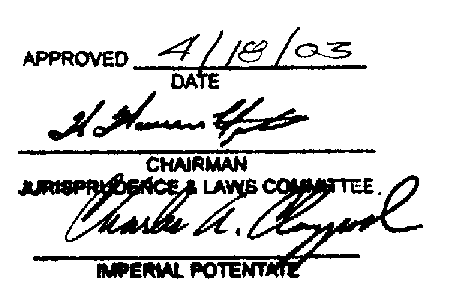 APPROVED 4/18/03
DATE
CHAIRMAN
JURISPRUDENCE & LAWS COMMITTEE.
Charles A. Claypool
IMPERIAL POTENTATE